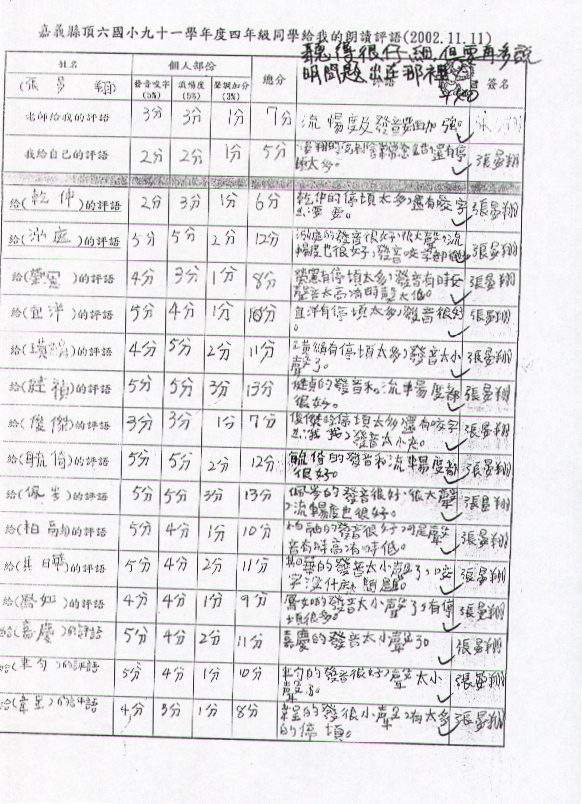 嘉義縣頂六國小九十一學年度四年級同學給我的朗讀評語(2002.11.11)
聽得很仔細但要再多說
明問題出在那裡
姓名 個人部份 總分 評語 簽名
(張晏翔) 發音咬字(5%) 流暢度(5%) 聲調加分(3%)
老師給我的評語 3分 3分 1分 7分 流暢度及發音要加強。
我給自己的評語 2分 2分 1分 5分 張晏翔
給(乾仲)的評語 2分 3分 1分 6分 乾仲的停頓太多,還有咬字 張晏翔
給(泓庭)的評語 5分 5分 2分 12分 泓庭的發音很好,很大聲,流
暢度也很好,發音咬字都 張晏翔
給( 憲)的評語 4分 3分 1分 8分 憲有停頓太多,發音有時
聲音太高,有時聲太低。 張晏翔
給( 洋)的評語 5分 4分 1分 10分 洋有停頓太多,發音很好 張晏翔
給( )的評語 4分 5分 2分 11分 有停頓太多,發音太小
聲了。 張晏翔
給(健禎)的評語 5分 5分 3分 13分 健禎的發音和流暢度都
很好。 張晏翔
給(俊傑)的評語 3分 3分 1分 7分 俊傑的停頓太多,還有咬字
發音太小 張晏翔
給(毓倚)的評語 5分 5分 2分 12分 毓倚的發音和流暢度都
很好。 張晏翔
給(佩 )的評語 5分 5分 3分 13分 佩 的發音很好,很大聲
,流暢度也很好。 張晏翔
給(柏 )的評語 5分 4分 1分 10分 的發音很好,可是聲
音有時高,有時低。 張晏翔
給( )的評語 5分 4分 2分 11分 的發音太小聲了,咬
字沒什麼問題。 張晏翔
給( 如)的評語 4分 4分 1分 9分 如的發音太小聲了,有停
頓很多。 張晏翔
給(嘉慶)的評語 5分 4分 2分 11分 嘉慶的發音太小聲了。 張晏翔
給( 均)的評語 5分 4分 1分 10分 均的發音很好,聲太小
聲。 張晏翔
給(韋呈)的評語 4分 3分 1分 8分 韋呈的發很小聲,有太多
的停頓。 張晏翔